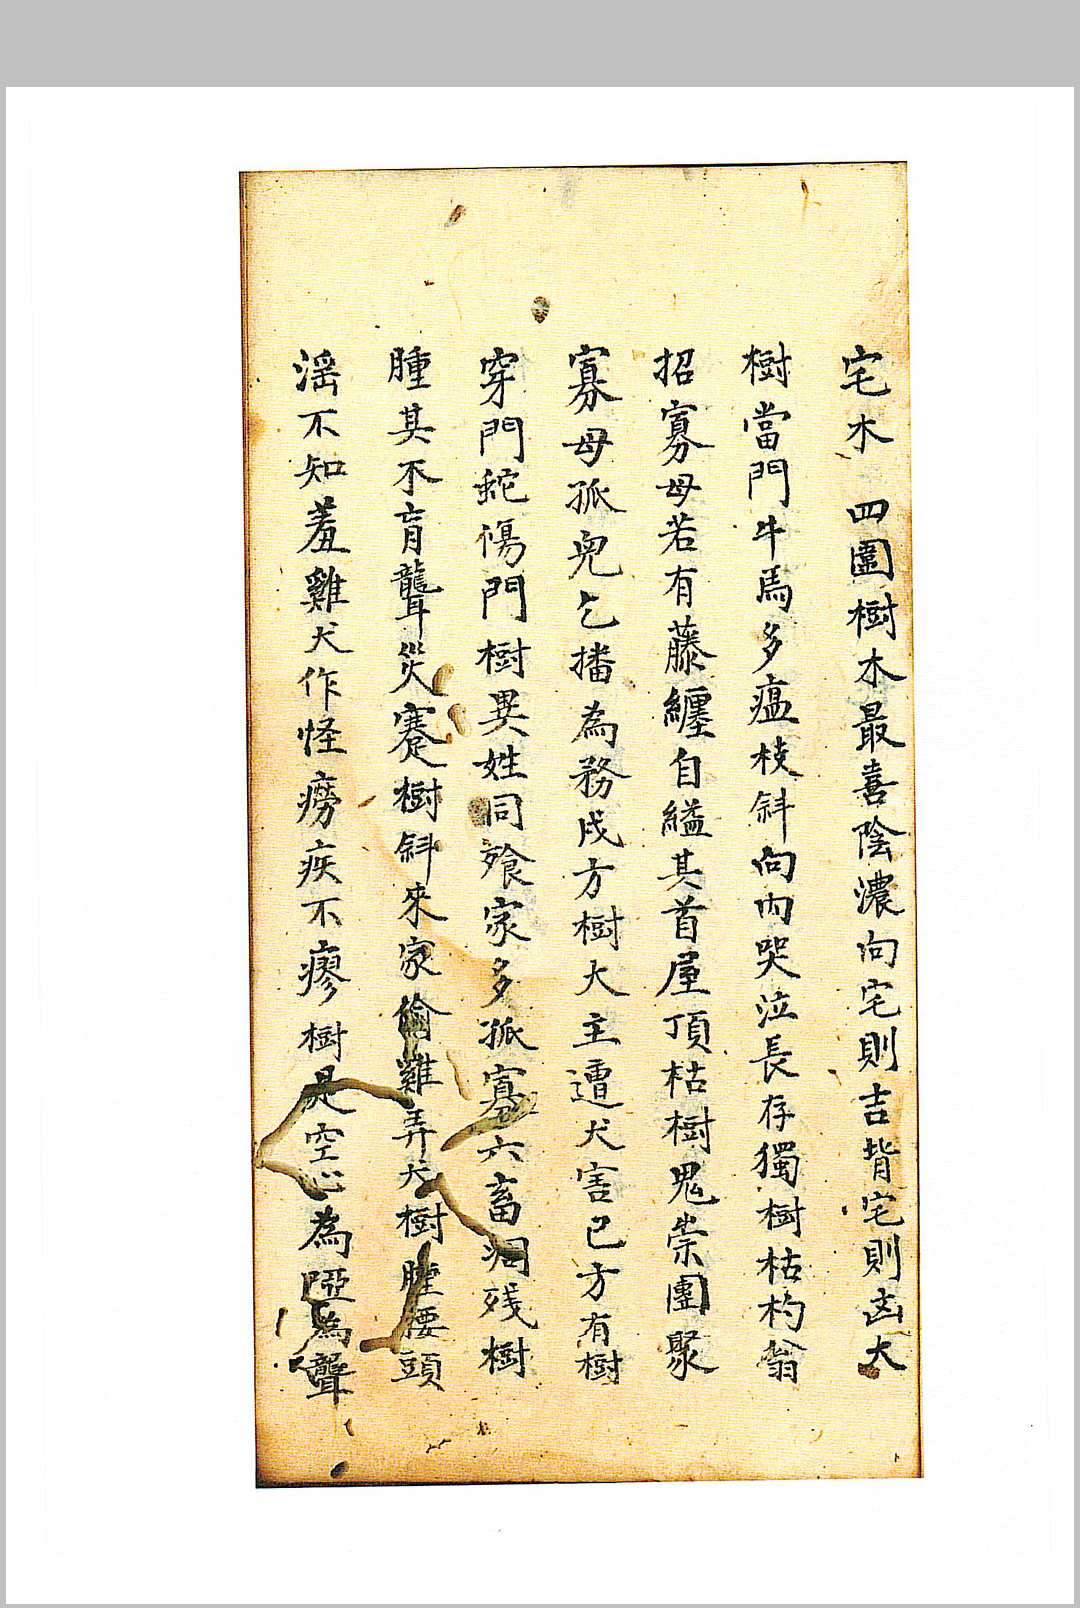 宅木　四圍樹木最喜陰濃向宅則吉背宅則凶大
樹當門牛馬多瘟枝斜向内哭泣長存獨樹枯杓翁
招寡母若有藤纏自縊其首屋頂枯樹鬼祟團聚
寡母孤兒乞播為務戌方樹大主遭犬害巳方有樹
穿門蛇傷門樹異姓同飱家多孤寡六畜凋残樹
腫其不肓聾災蹇樹斜來家偷雞弄犬樹腫腰頭
滛不知羞雞犬作怪癆疾不瘳樹是空心為啞為聾